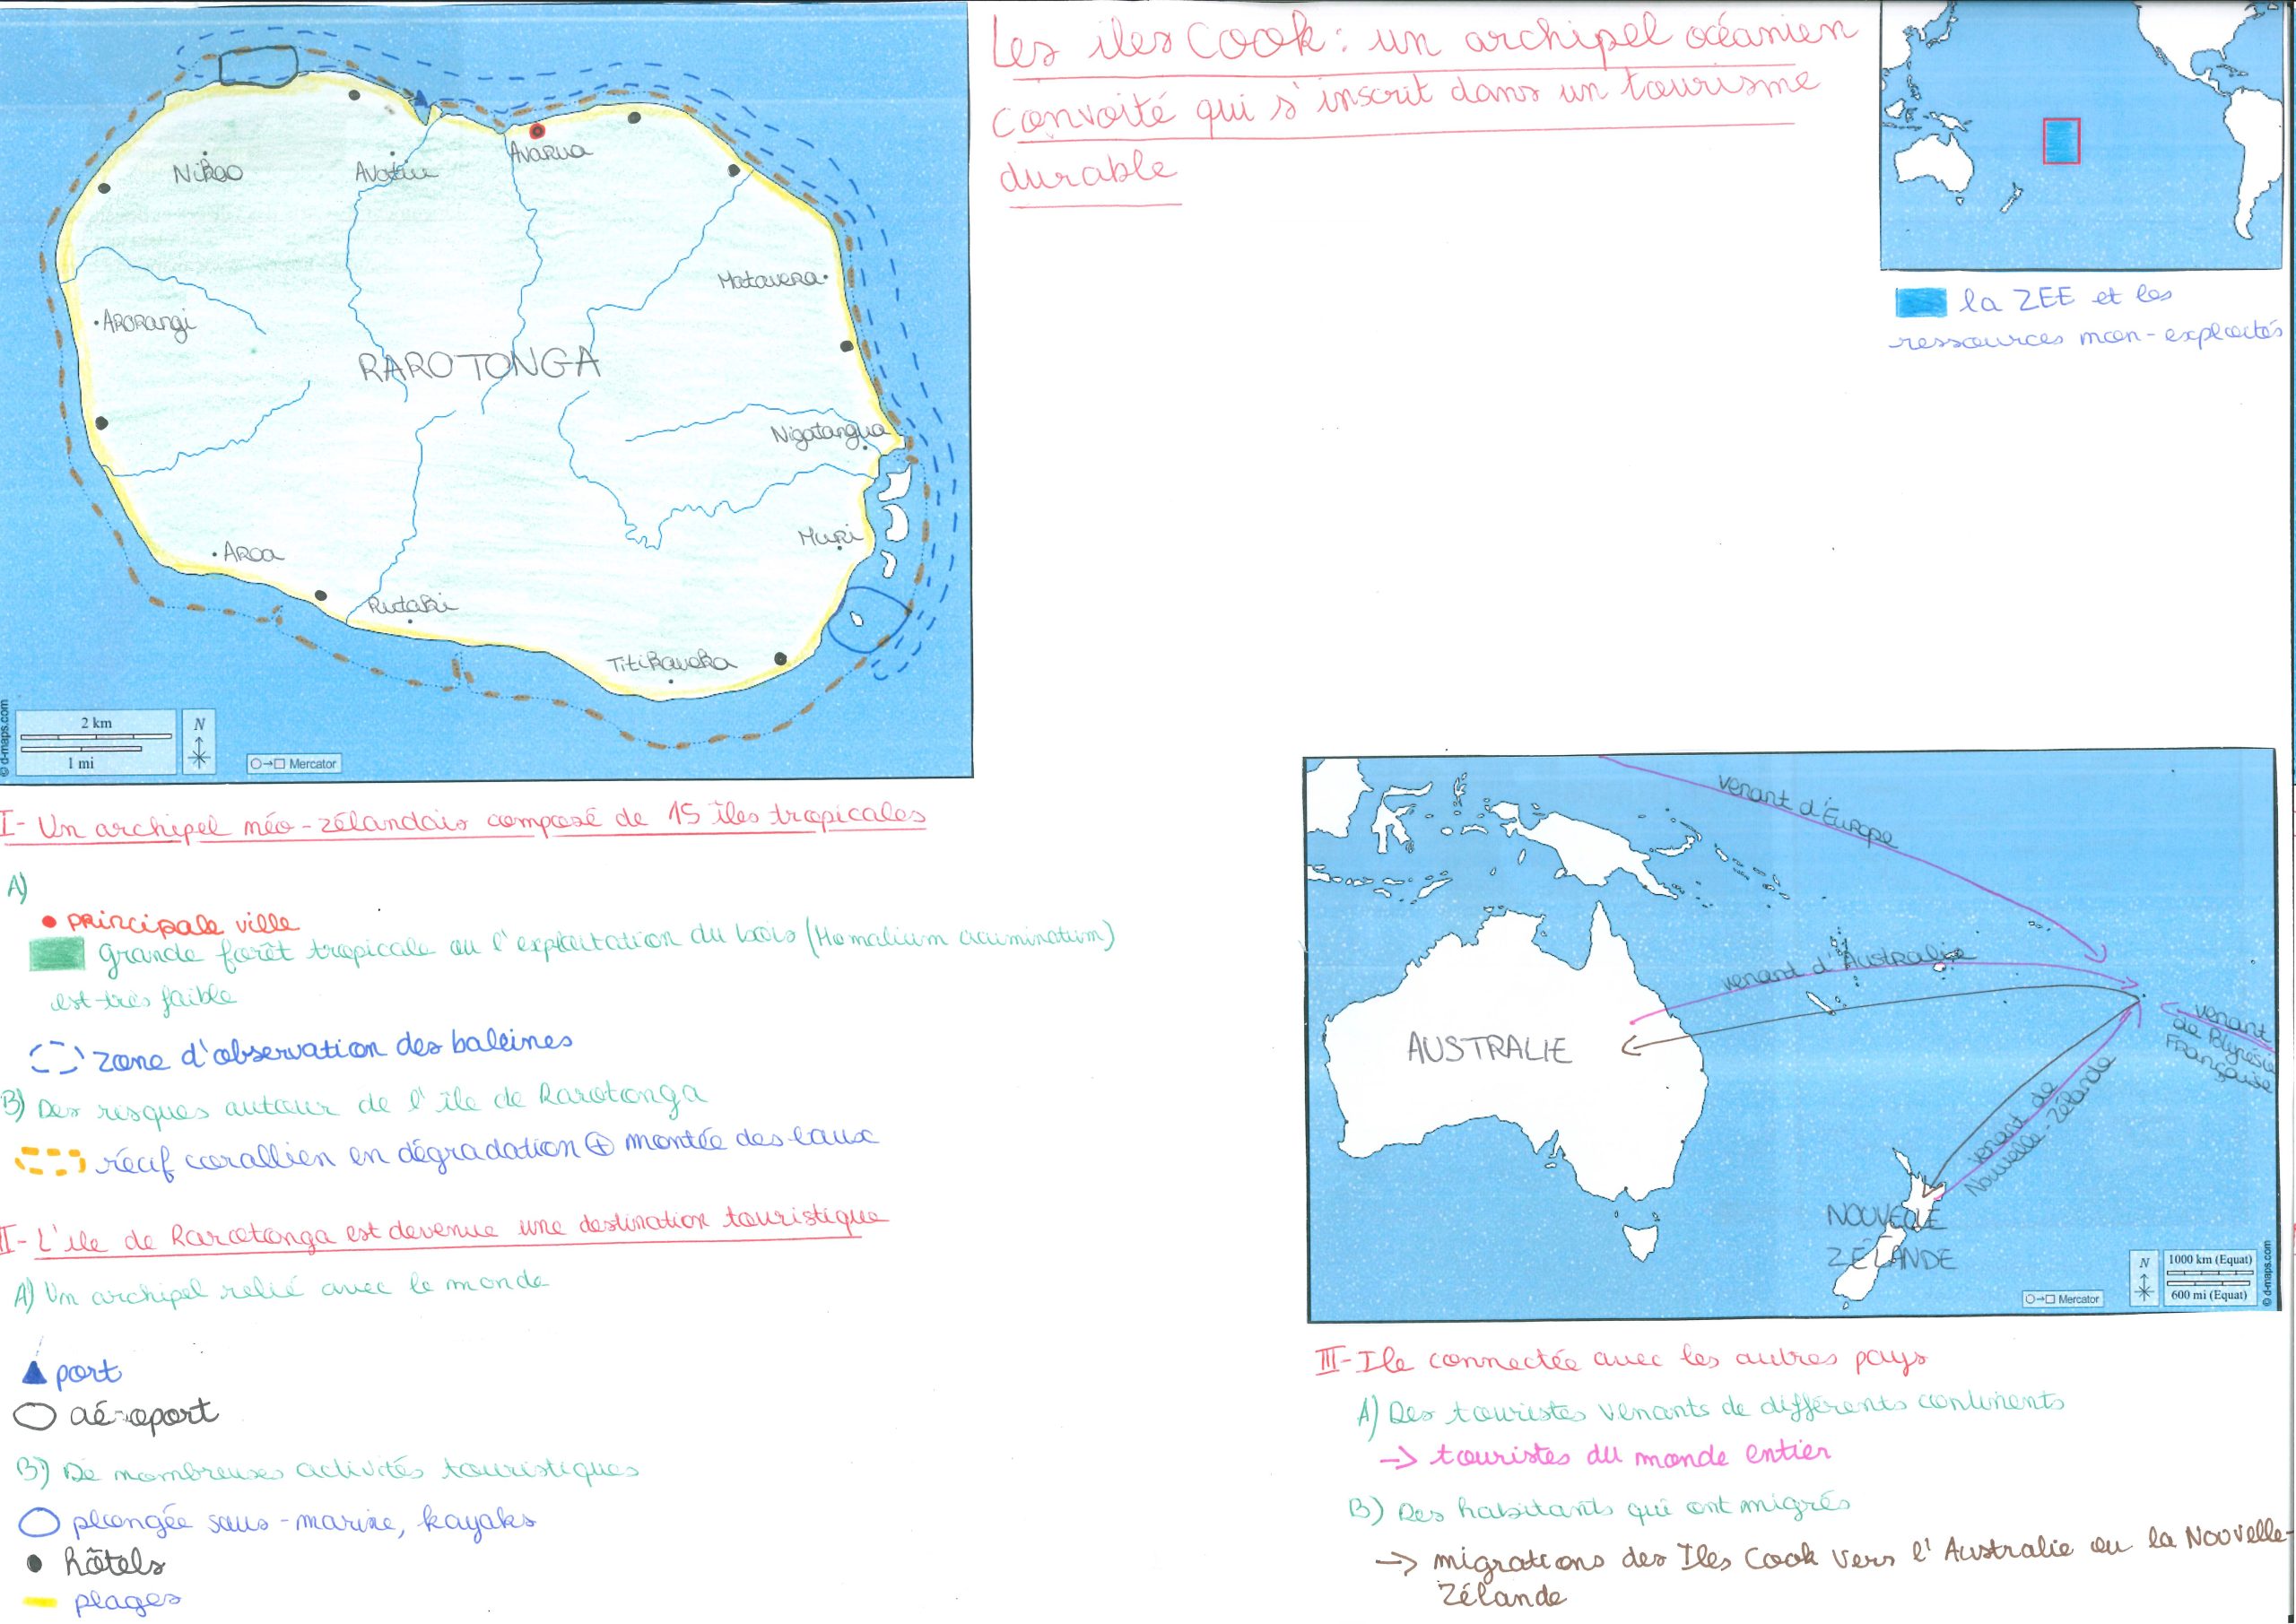 Les iles Cook : un archipel océanien
convoité qui s'inscrit dans un tourisme
durable
la ZEE et les
ressources non-exploités
Nikao
Avatiu
Avarua
Matavera
Arorangi
RAROTONGA
Nigatangua
Muri
Aroa
Rutaki
Titikaveka
2 km
1 mi
N
Mercator
© d-maps.com
I- Un archipel néo-zélandais composé de 15 îles tropicales
A)
principale ville
grande forêt tropicale ou l'exploitation du bois (Homalium acuminatum)
est très faible
zone d'observation des baleines
B) Des risques autour de l'île de Rarotonga
récif corallien en dégradation + montée des eaux
II- L'ile de Rarotonga est devenue une destination touristique
A) Un archipel relié avec le monde
port
aéroport
B) De nombreuses activités touristiques
plongée sous-marine, kayaks
hôtels
plages
venant d'Europe
venant d'Australie
venant
de Polynésie
Française
AUSTRALIE
venant de
Nouvelle-Zélande
NOUVELLE
ZÉLANDE
N
1000 km (Equat)
600 mi (Equat)
Mercator
© d-maps.com
III- Ile connectée avec les autres pays
A) Des touristes venants de différents continents
→ touristes du monde entier
B) Des habitants qui ont migrés
→ migrations des Iles Cook vers l'Australie ou la Nouvelle-
Zélande